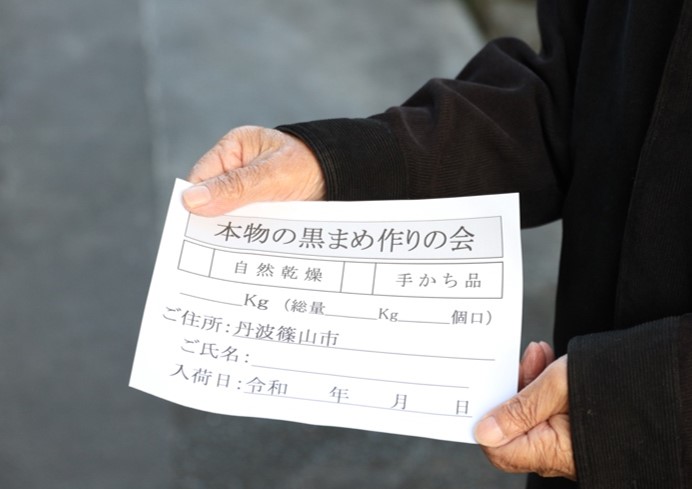 本物の黒まめ作りの会
自然乾燥 手かち品
______Kg (総量______Kg______個口)
ご住所:丹波篠山市
ご氏名:
入荷日:令和 年 月 日